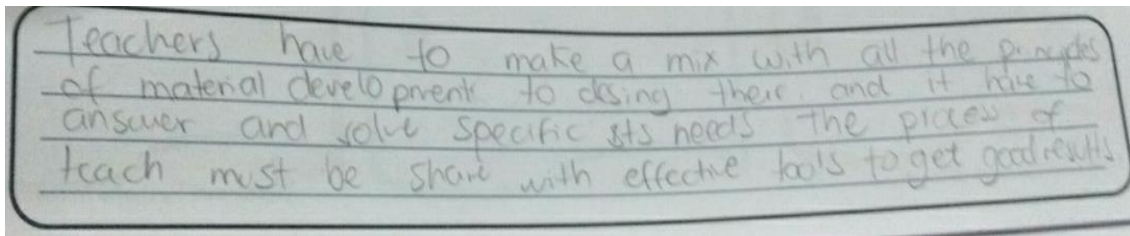 Teachers have to make a mix with all the principles
of material development to desing their and it have to
answer and solve specific sts needs the process of
teach must be share with effective tools to get good results